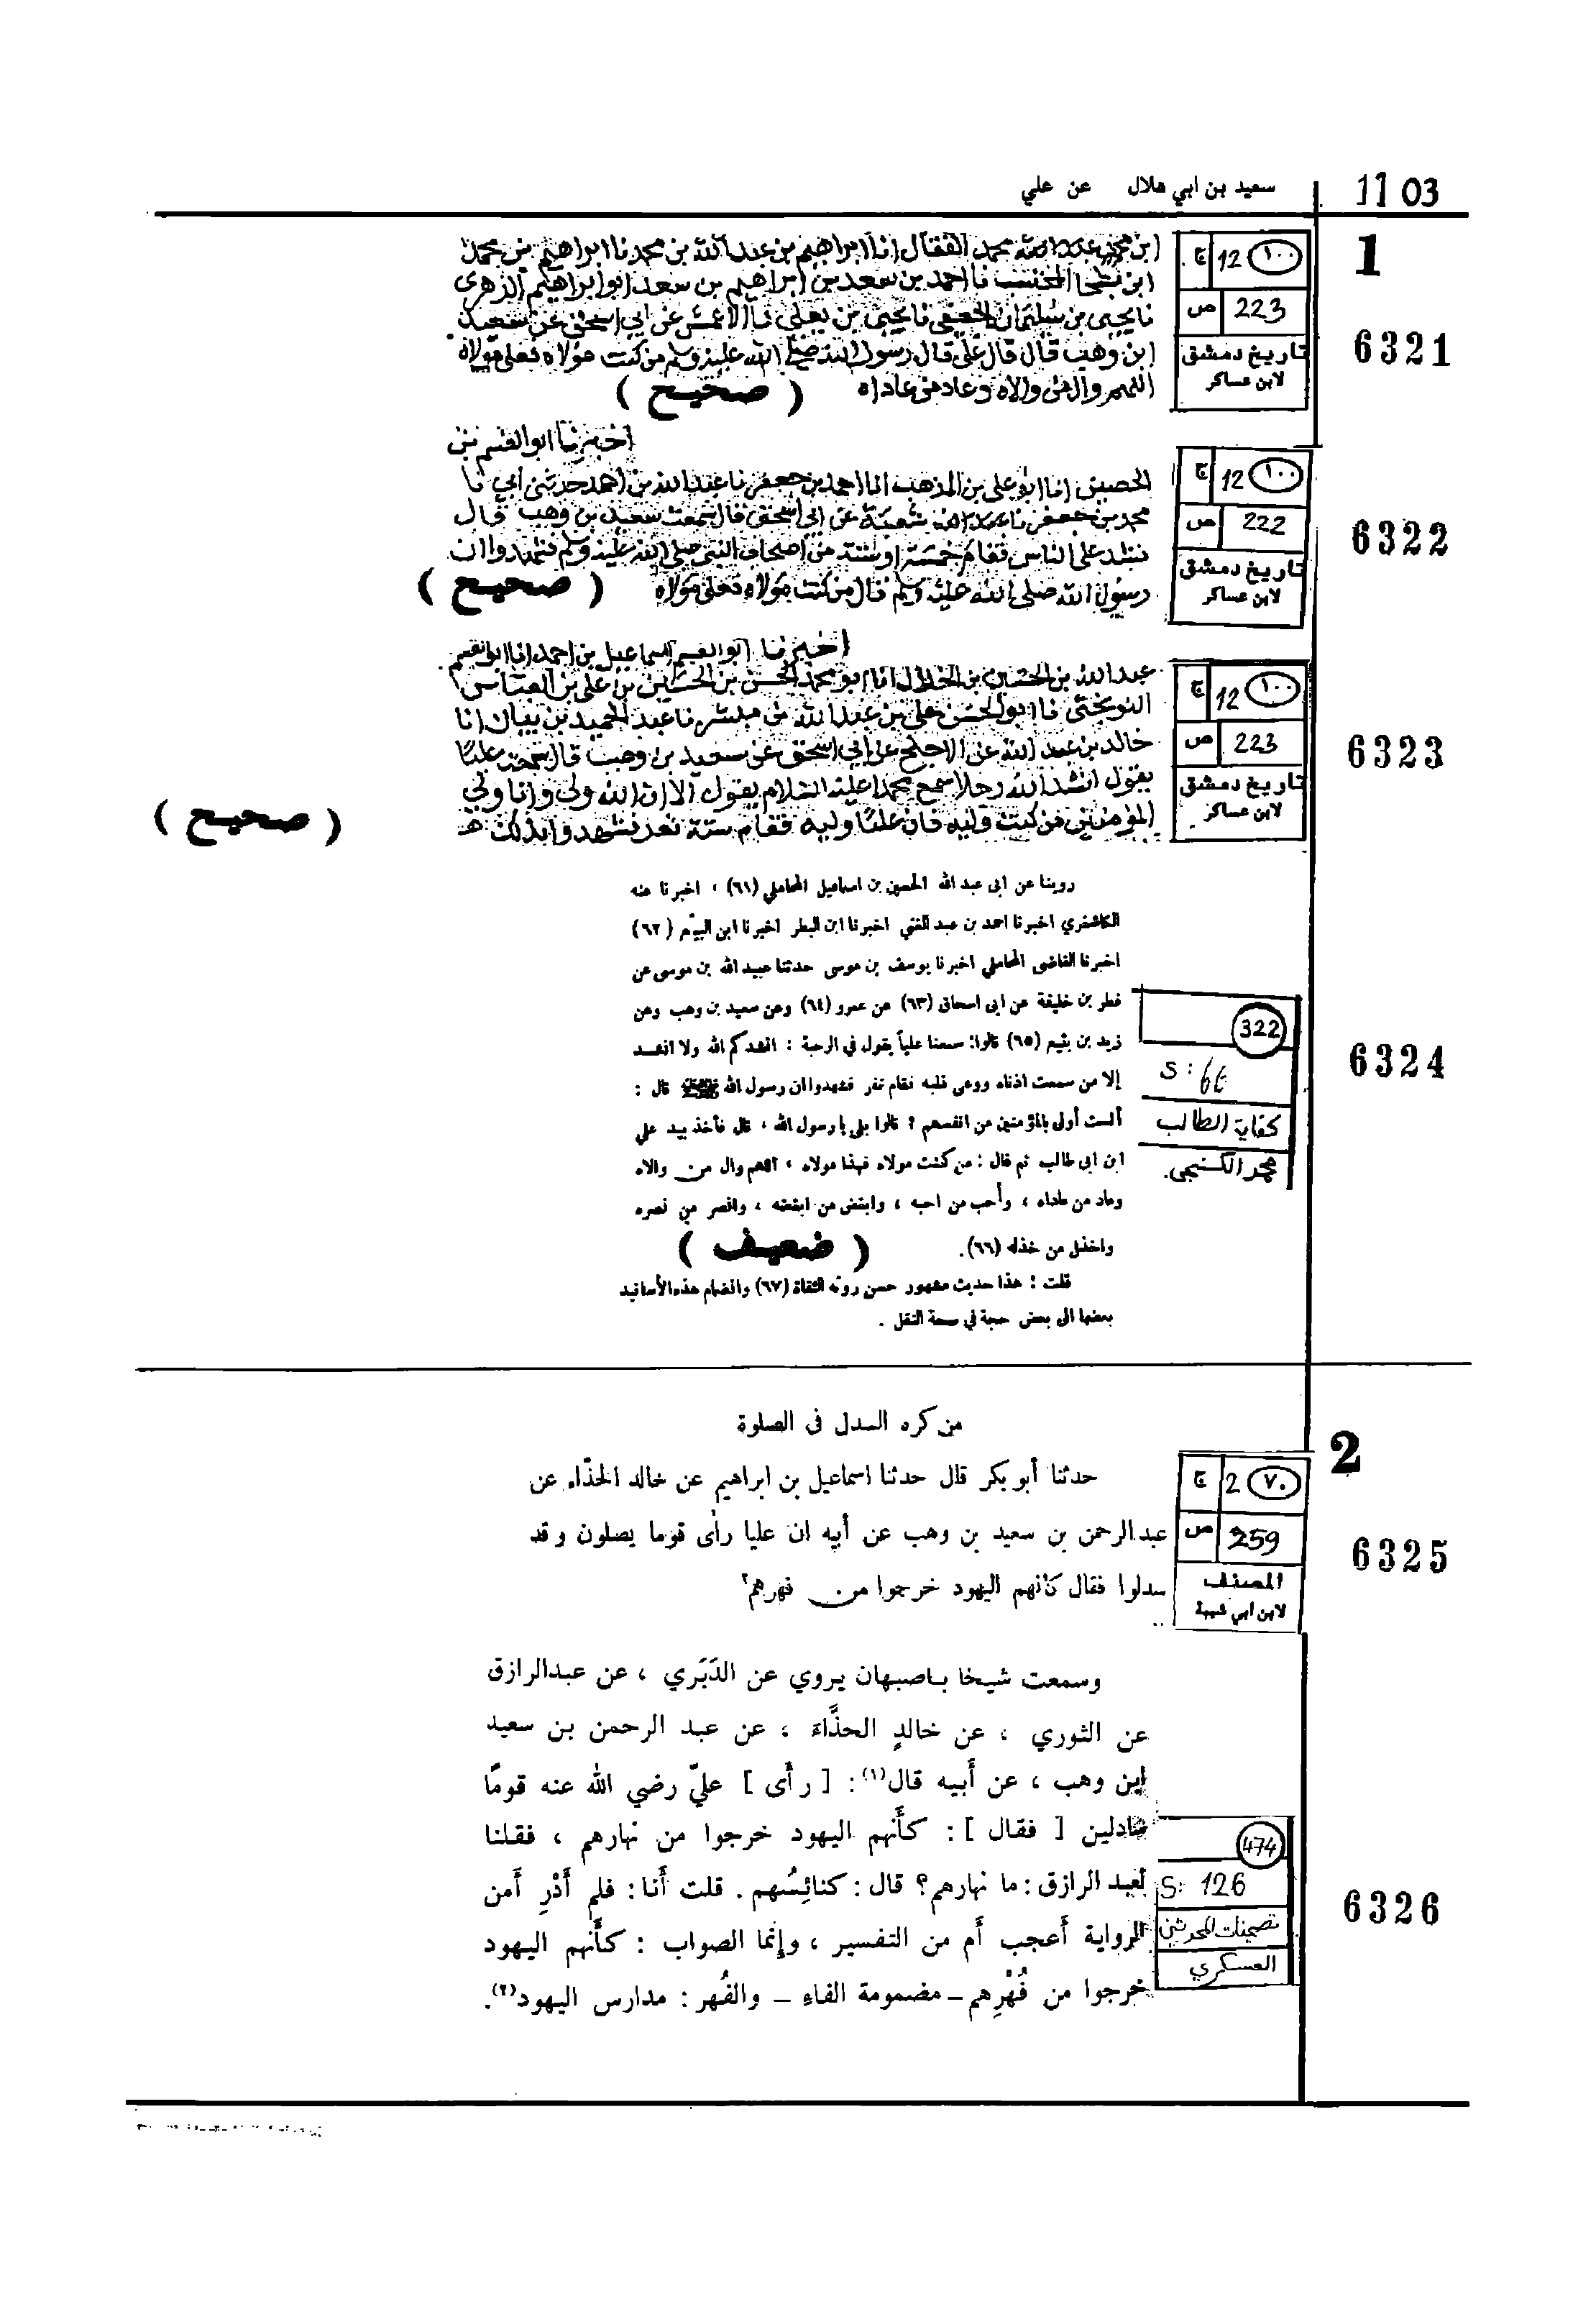 سعيد بن ابي هلال عن علي
11 03
1
ج 12 ١٠٠
ص 223
تاريخ دمشق
لابن عساكر
6321
ابن محمد بن عبد الله بن محمد القفال انا ابراهيم بن عبد الله بن محمد نا ابراهيم بن محمد
نا احمد بن سعد بن ابراهيم بن سعد ابو ابراهيم الزهري
نا يحيى بن سليمان الجعفي نا يحيى بن يعلى نا الاعمش عن ابي اسحق عن سعيد
ابن وهب قال قال علي قال رسول الله صلى الله عليه وسلم من كنت مولاه فعلي مولاه
اللهم وال من والاه وعاد من عاداه ( صحيح )
ج 12 ١٠٠
ص 222
تاريخ دمشق
لابن عساكر
6322
اخبرنا ابو القسم بن
الحصين انا ابو علي بن المذهب انا احمد بن جعفر نا عبد الله بن احمد حدثني أبي نا
محمد بن جعفر نا شعبة عن ابي اسحق قال سمعت سعيد بن وهب قال
نشد علي الناس فقام خمسة او ستة من اصحاب النبي صلى الله عليه وسلم فشهدوا ان
رسول الله صلى الله عليه وسلم قال من كنت مولاه فعلي مولاه ( صحيح )
ج 12 ١٠٠
ص 223
تاريخ دمشق
لابن عساكر
6323
اخبرنا ابو القسم اسماعيل بن احمد انا ابو القسم
عبد الله بن الحسين بن الخلال انا ابو محمد الحسن بن الحسين بن علي بن العباس
النوبختي نا ابو الحسن علي بن عبد الله بن مبشر نا عبد الحميد بن بيان انا
خالد بن عبد الله عن الاجلح عن ابي اسحق عن سعيد بن وهب قال سمعت عليا
يقول انشد الله رجلا سمع محمدا عليه السلام يقول الا ان الله وليي وانا ولي
المؤمنين من كنت وليه فان عليا وليه فقام ستة نفر فشهدوا بذلك ( صحيح )
روينا عن ابى عبد الله الحسين بن اسماعيل المحاملي (٦١) ، اخبرنا عنه
الكاشغري اخبرنا احمد بن عبد الغني اخبرنا ابن البطر اخبرنا ابن البيّع (٦٢)
اخبرنا القاضى المحاملي اخبرنا يوسف بن موسى حدثنا عبيد الله بن موسى عن
فطر بن خليفة عن ابى اسحاق (٦٣) عن عمرو (٦٤) وعن سعيد بن وهب وعن
زيد بن يثيع (٦٥) قالوا: سمعنا علياً يقول في الرحبة : انشدكم الله ولا انشد
إلا من سمعت اذناه ووعى قلبه فقام نفر فشهدوا ان رسول الله قال :
ألست أولى بالمؤمنين من انفسهم ؟ قالوا بلى يا رسول الله ، قال فأخذ بيد علي
ابن ابى طالب ثم قال : من كنت مولاه فهذا مولاه ، اللهم وال من والاه
وعاد من عاداه ، وأحب من احبه ، وابغض من ابغضه ، وانصر من نصره
واخذل من خذله (٦٦). ( ضعيف )
قلت : هذا حديث مشهور حسن روته الثقاة (٦٧) وانضمام هذه الأسانيد
بعضها الى بعض حجة في صحة النقل .
322
S: 66
كفاية الطالب
محمد الكنجي.
6324
2
من كره السدل فى الصلوة
ج 2 ٧٠
ص 259
المصنف
لابن ابي شيبة
6325
حدثنا أبو بكر قال حدثنا اسماعيل بن ابراهيم عن خالد الحذّاء عن
عبد الرحمن بن سعيد بن وهب عن أبيه ان عليا رأى قوما يصلون و قد
سدلوا فقال كانهم اليهود خرجوا من فهرهم٢
وسمعت شيخا بـاصبهان يروي عن الدَبَري ، عن عبدالرازق
عن الثوري ، عن خالدٍ الحذَّاء ، عن عبد الرحمن بن سعيد
ابن وهب ، عن أَبيه قال(١): [ رأَى ] عليّ رضي الله عنه قومًا
سادلين [ فقال ] : كأَنهم اليهود خرجوا من نهارهم ، فقلنا
لعبد الرازق : ما نهارهم؟ قال : كنائِسُهم . قلت أَنا : فلم أَدْرِ أَمن
الرواية أَعجب أَم من التفسير ، وإنما الصواب : كأَنهم اليهود
خرجوا من فُهْرِهم - مضمومة الفاءِ - والفُهر : مدارس اليهود(٢).
474
S: 126
تصحيفات المحدثين
العسكري
6326